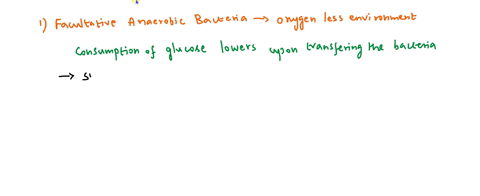 1) Facultative Anaerobic Bacteria → oxygen less environment
Consumption of glucose lowers upon transfering the bacteria
→ s